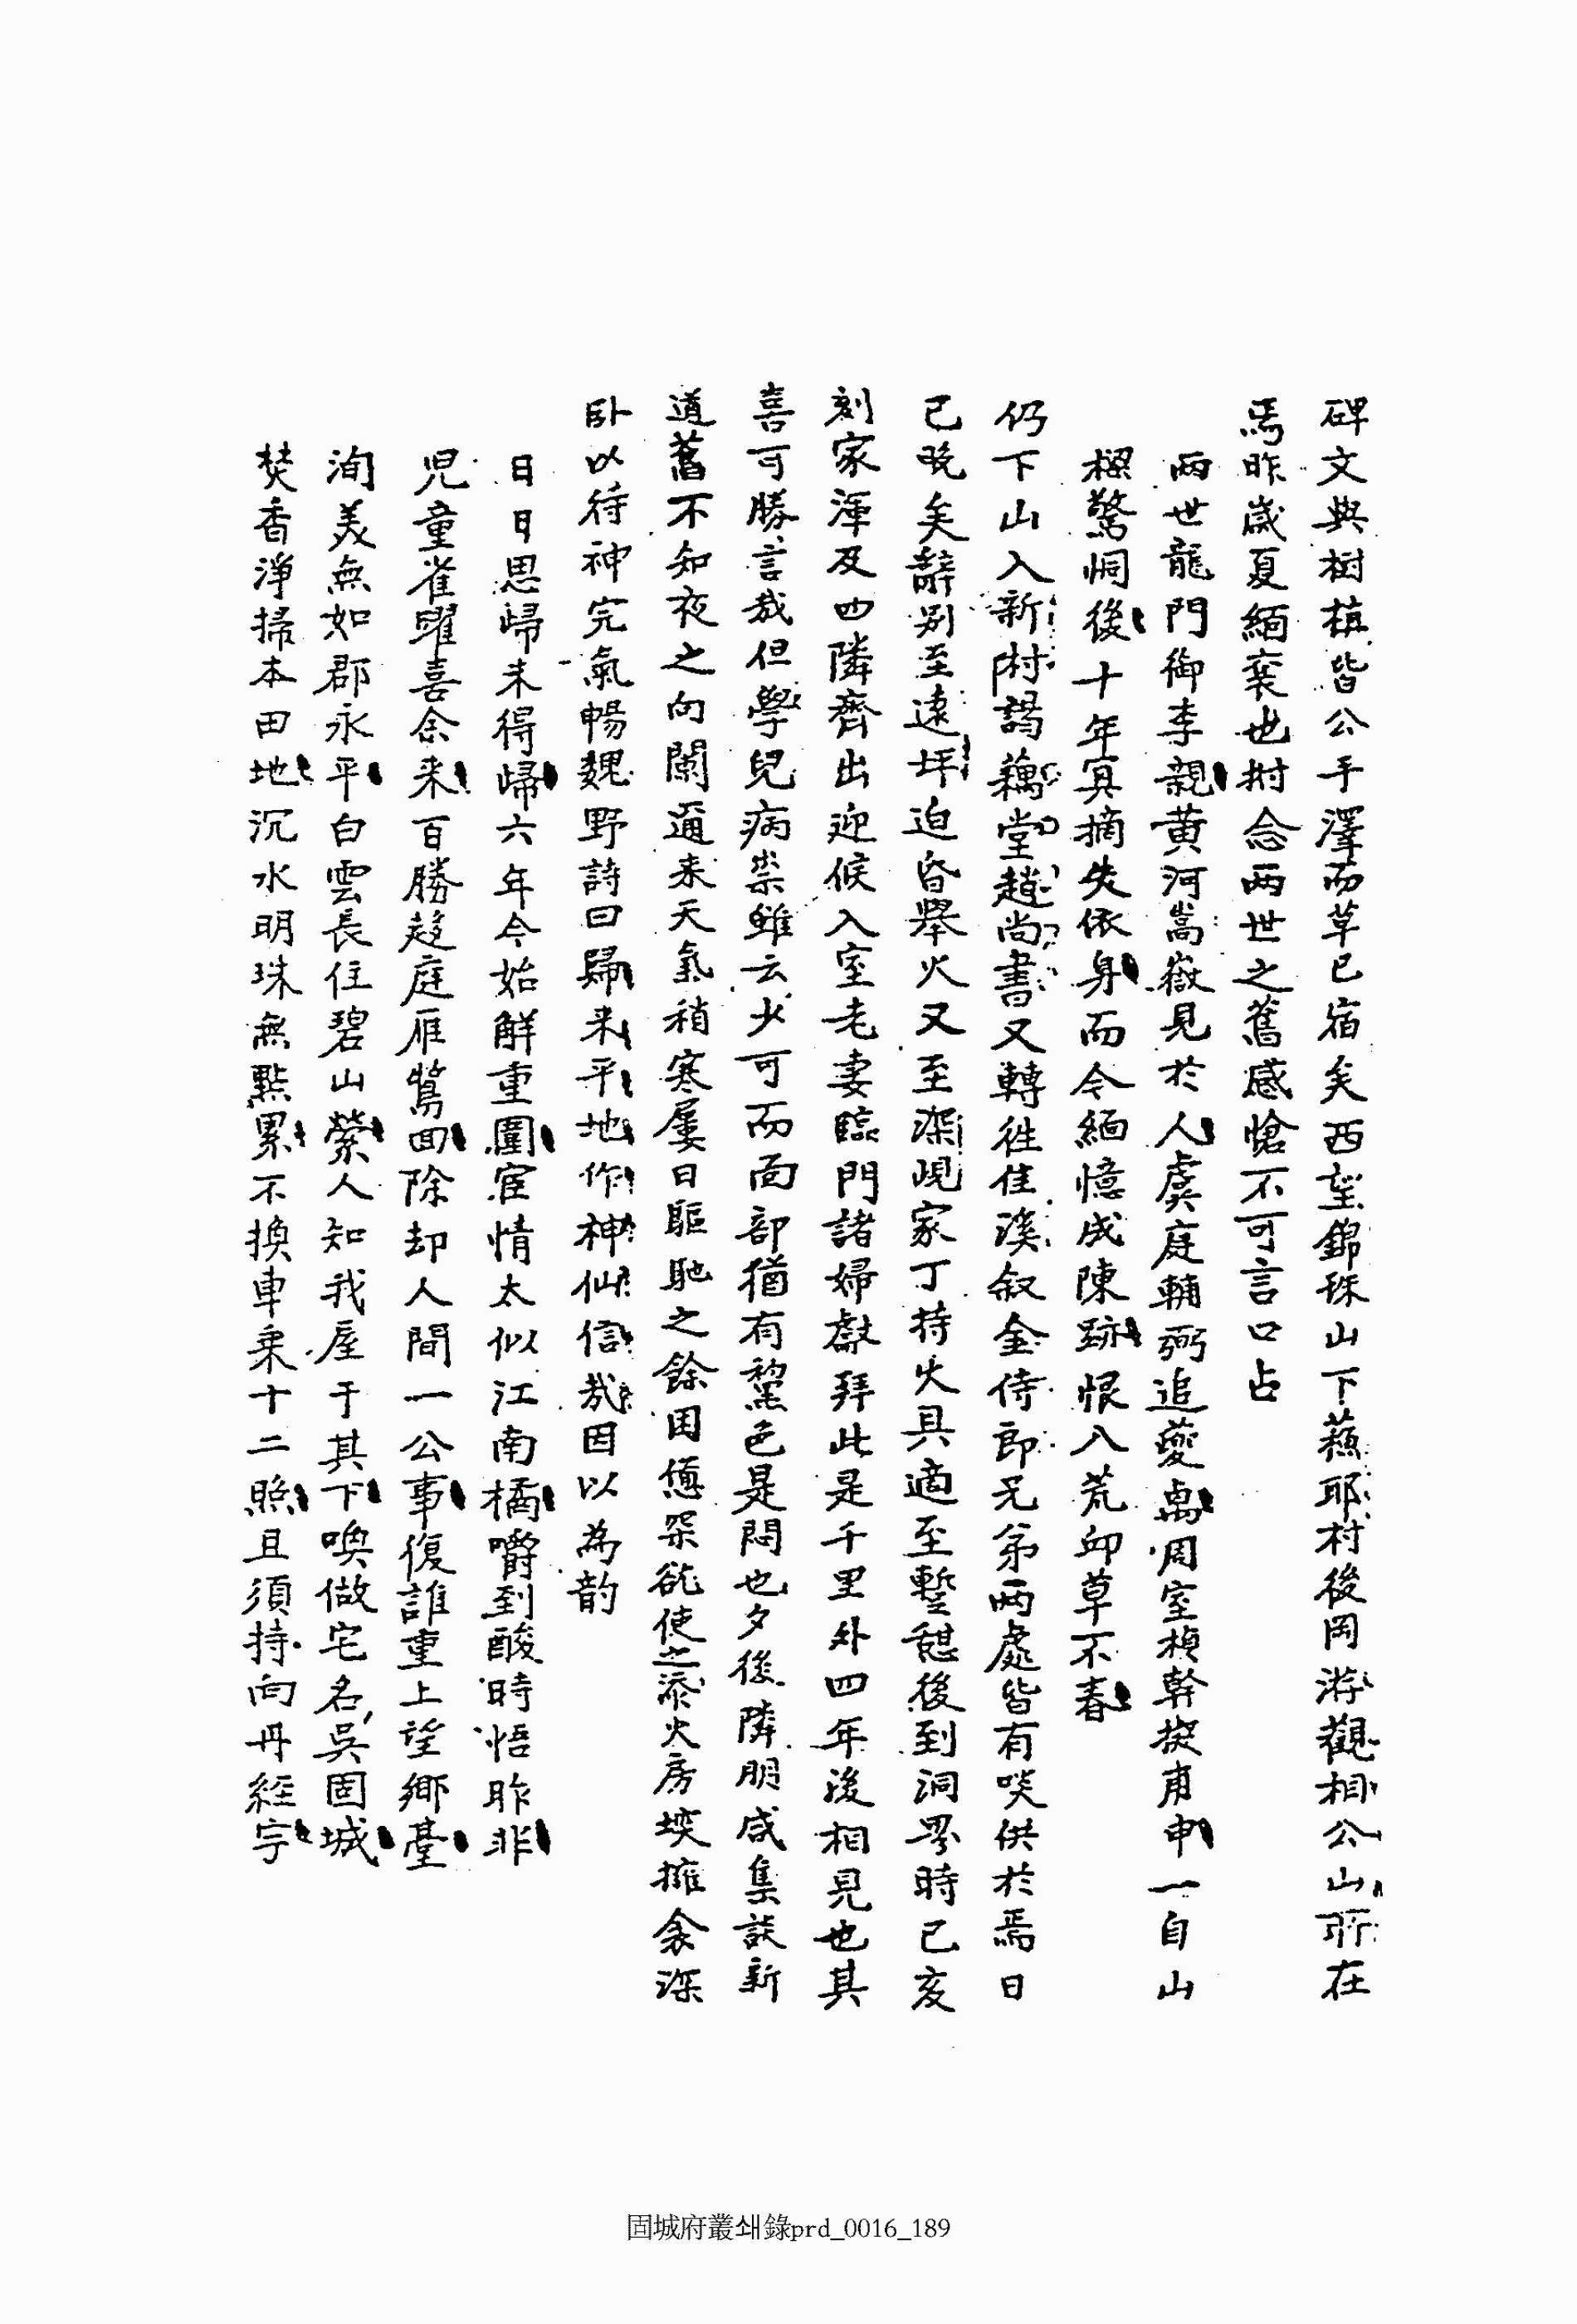 碑文與樹植皆公手澤而草已宿矣西望錦珠山下蘓耶村後岡游觀相公山所在
焉昨歲夏緬襄也尌念两世之舊感愴不可言口占
兩世龍門御李親黄河嵩嶽見於人虞庭輔弼追夔卨周室楨幹挺甫申一自山
樑驚恫後十年冥擿失依身而今緬憶成陳跡恨入荒邱草不春
仍下山入新村謁藕堂趙尚書又轉徃佳溪叙金侍郎兄弟两處皆有啖供於焉日
已晩矣辭別至遠坪迫昏舉火又至深峴家丁持火具適至蹔憩後到洞界時已亥
刻家渾及四隣齊出迎候入室老妻臨門諸婦獻拜此是千里外四年後相見也其
喜可勝言哉但學兒病祟雖云少可而面部猶有黧色是悶也夕後隣朋咸集談新
道舊不知夜之向闌邇来天氣稍寒屢日驅馳之餘困憊罙欲使之添火房堗擁衾深
卧以待神完氣暢魏野詩曰歸来平地作神仙信哉因以為韵
日日思歸未得歸六年今始觧重圍宦情太似江南橘嚼到酸時悟昨非
児童雀躍喜余来百勝趍庭雁鶩回除却人間一公事復誰重上望鄉臺
洵美無如郡永平白雲長住碧山縈人知我屋于其下喚做宅名吳固城
焚香淨掃本田地沉水明珠無點累不換車乘十二照且須持向丹經字
固城府叢쇄錄prd_0016_189